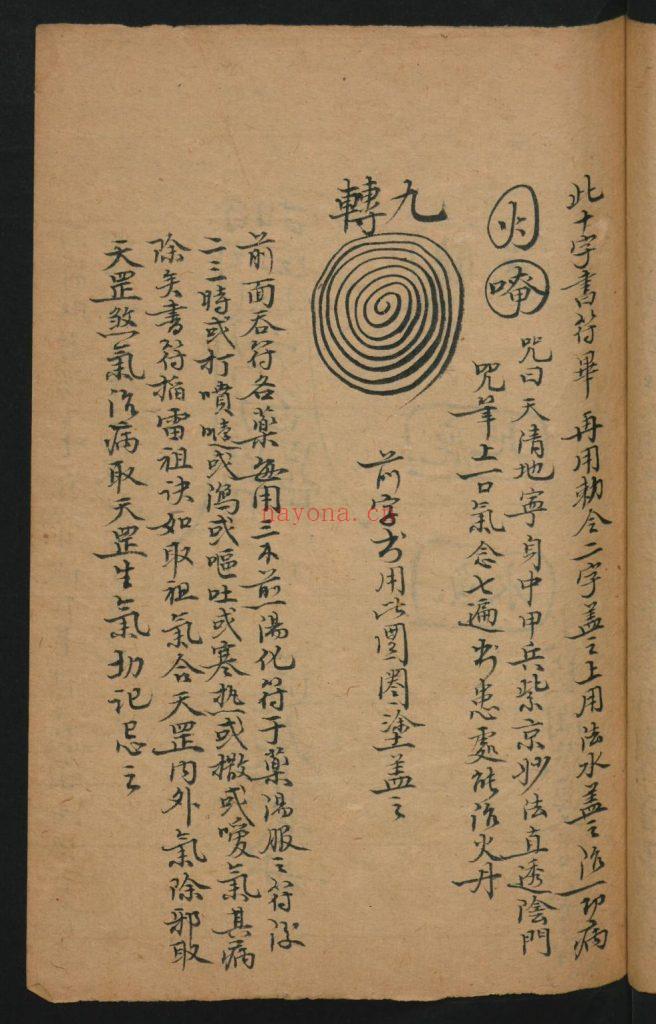 此十字書符畢再用勅令二字蓋之上用法水蓋之治一切病
火 唵
咒曰天清地寧身中甲兵紫京妙法直透陰門
咒筆上一口氣念七遍书患處能治火丹
九轉
前字书用此圈圈塗蓋之
前面吞符各藥每用三木煎湯化符于藥湯服之符後
二三時或打噴嚏或瀉或嘔吐或寒热或撒或噯氣其病
除矣書符掐雷祖诀如取祖氣合天罡内外氣除邪取
天罡煞氣治病取天罡生氣切記忌之
nayona.cn